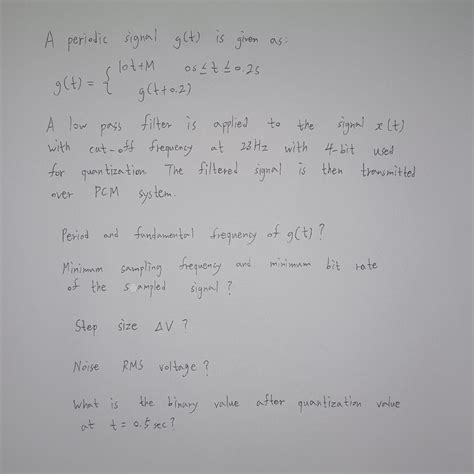 A periodic signal g(t) is given as:
g(t) = { 10t+M 0s ≤ t ≤ 0.2s
g(t+0.2)
A low pass filter is applied to the signal x(t)
with cut-off frequency at 23Hz with 4-bit used
for quantization. The filtered signal is then transmitted
over PCM system.
Period and fundamental frequency of g(t)?
Minimum sampling frequency and minimum bit rate
of the sampled signal?
Step size ΔV?
Noise RMS voltage?
What is the binary value after quantization value
at t = 0.5 sec?